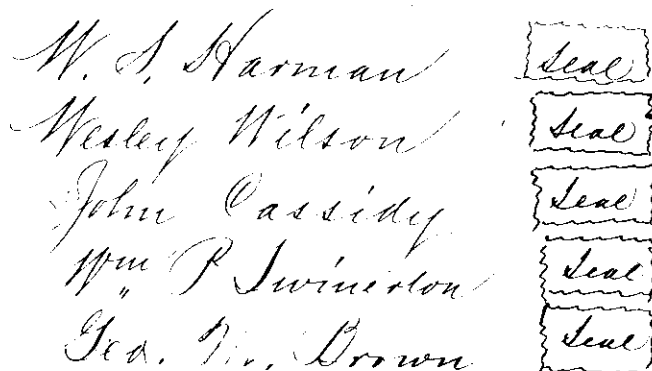 W. S. Harman Seal
Wesley Wilson Seal
John Cassidy Seal
Wm P Swinerton Seal
Geo. W. Brown Seal